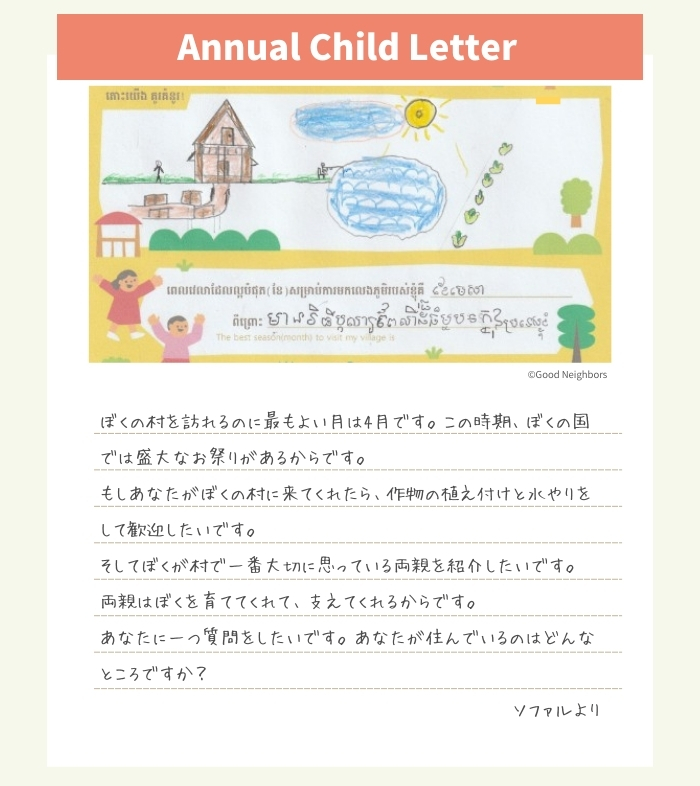 Annual Child Letter
កោះយើង គូរគំនូរ!
ពេលវេលាដែលល្អបំផុត(ខែ)សម្រាប់ការមកលេងភូមិរបស់ខ្ញុំគឺ ខែមេសា
ពីព្រោះ មានពិធីបុណ្យ
The best season(month) to visit my village is
©Good Neighbors
ぼくの村を訪れるのに最もよい月は4月です。この時期、ぼくの国
では盛大なお祭りがあるからです。
もしあなたがぼくの村に来てくれたら、作物の植え付けと水やりを
して歓迎したいです。
そしてぼくが村で一番大切に思っている両親を紹介したいです。
両親はぼくを育ててくれて、支えてくれるからです。
あなたに一つ質問をしたいです。あなたが住んでいるのはどんな
ところですか?
ソファルより